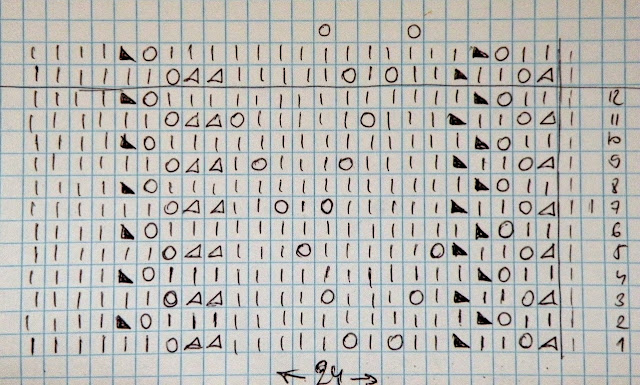 12
11
10
9
8
7
6
5
4
3
2
1
← 24 →